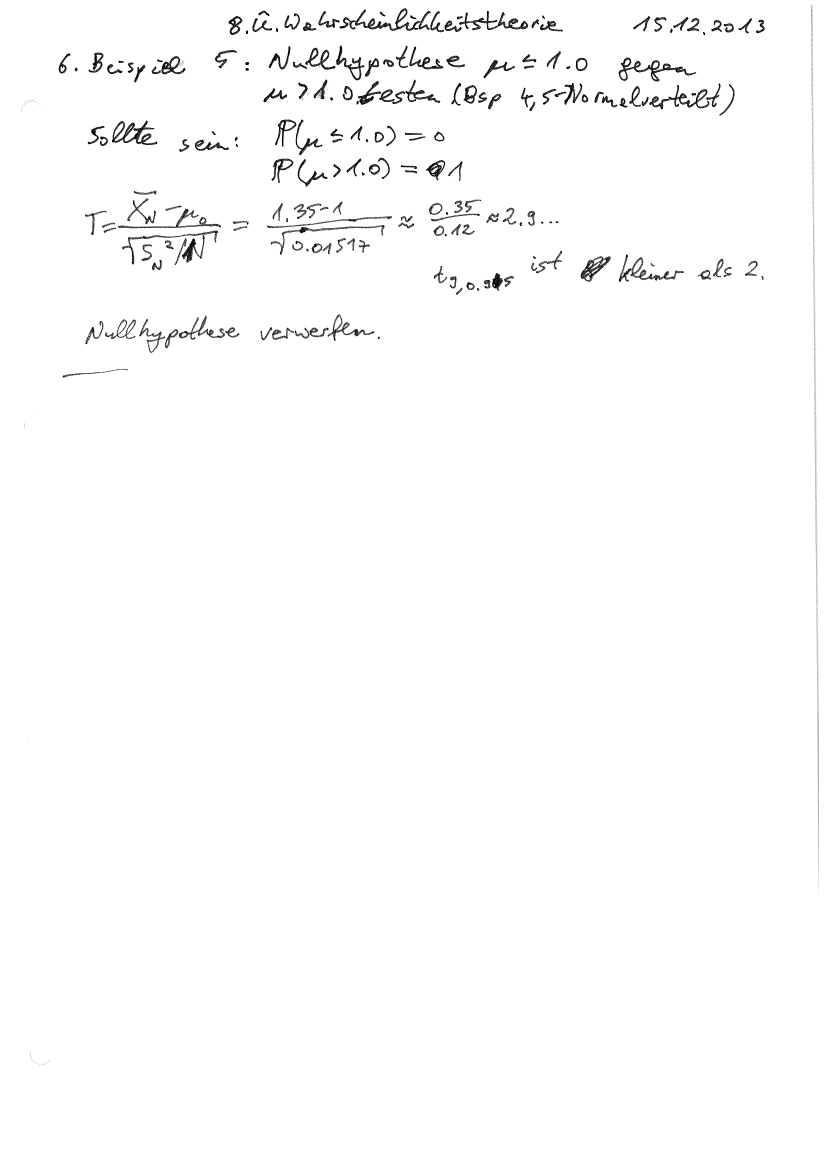 8. Ü. Wahrscheinlichkeitstheorie 15.12.2013
6. Beispiel 5: Nullhypothese μ ≤ 1.0 gegen
μ > 1.0 testen (Bsp 4,5-Normalverteilt)
Sollte sein: ℙ(μ ≤ 1.0) = 0
ℙ(μ > 1.0) = 1
T = (X̄_N − μ₀) / √(S_N²/N) = (1.35 − 1) / √(0.01517) ≈ 0.35/0.12 ≈ 2.9...
ist kleiner als 2.
Nullhypothese verwerfen.